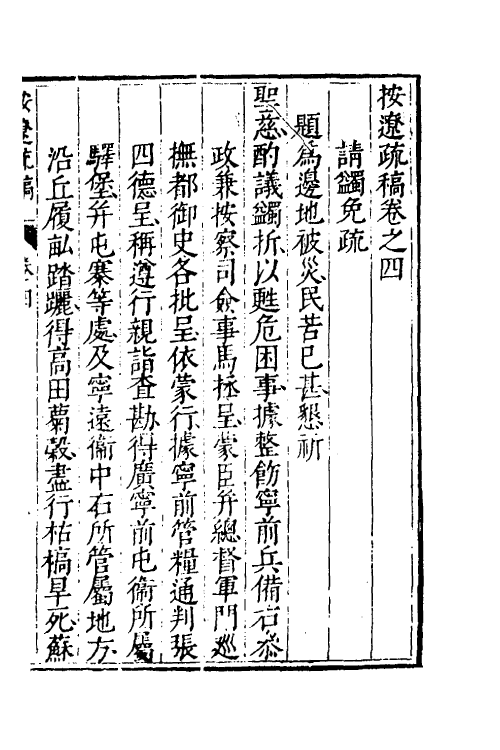 按遼疏稿卷之四
請蠲免疏
題爲邊地被災民苦已甚懇祈
聖慈酌議蠲折以甦危困事據整飭寧前兵備右叅
政兼按察司僉事馬拯呈蒙臣并總督軍門巡
撫都御史各批呈依蒙行據寧前管糧通判張
四德呈稱遵行親詣查勘得廣寧前屯衞所屬
驛堡并屯寨等處及寧遠衞中右所管屬地方
沿丘履畝踏䟐得高田菊穀盡行枯槁旱死蘇
按遼疏稿
卷四